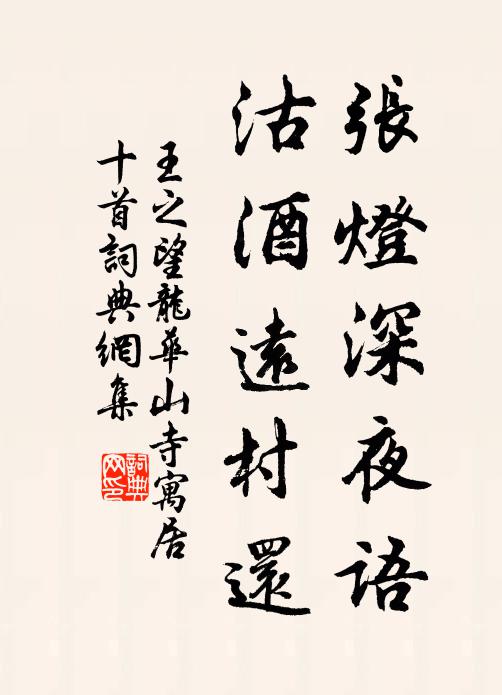 張燈深夜語
沽酒遠村還
王之望龍華山寺寓居
十首詞典網集
詞典網印